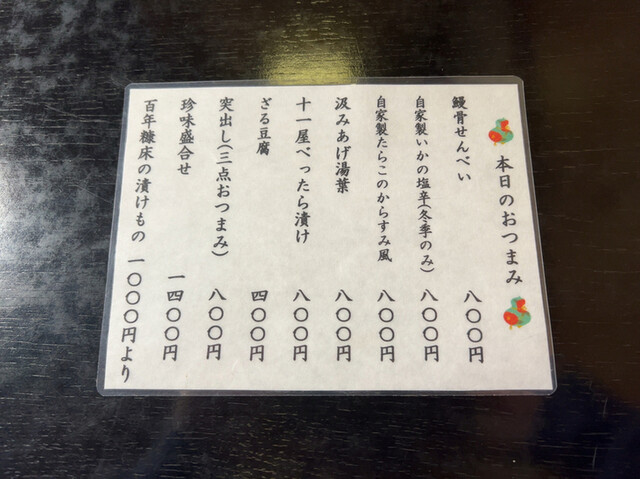 本日のおつまみ
鰻骨せんべい 八〇〇円
自家製いかの塩辛(冬季のみ) 八〇〇円
自家製たらこのからすみ風 八〇〇円
汲みあげ湯葉 八〇〇円
十一屋べったら漬け 八〇〇円
ざる豆腐 四〇〇円
突出し(三点おつまみ) 八〇〇円
珍味盛合せ 一四〇〇円
百年糠床の漬けもの 一〇〇〇円より